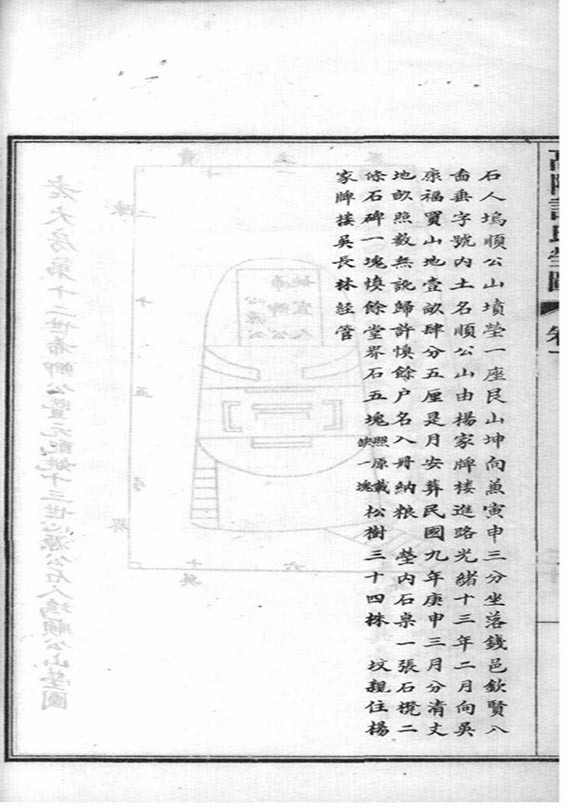 高陽許氏塋圖 卷一
石人塢順公山墳塋一座艮山坤向兼寅申三分坐落錢邑欽賢八
啚垂字號內土名順公山由楊家牌樓進路光緒十三年二月向吳
康福買山地壹畝肆分五厘是月安葬民國九年庚申三月分清丈
地畝照数無訛歸許慎餘户名入冊納粮 塋內石桌一張石櫈二
條石碑一塊慎餘堂界石五塊照原載缺一塊松樹三十四株 坟親住楊
家牌楼吳長林管